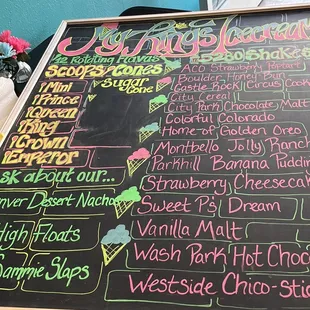 Jay King's Icecream
12 Rotating Flavas
$5280 Shakes
Scoops/Cones
1 Mini
1 Prince
1 Queen
1 King
1 Crown
1 Emperor
Sugar
Cone
sk about our...
nver Dessert Nachos
High Floats
Sammie Slaps
Aco Strawberry Yogurt
Boulder Honey Bun
Castle Rock Circus Cook
City Cereal
City Park Chocolate Malt
Colorful Colorado
Home of Golden Oreo
Montbello Jolly Ranch
Parkhill Banana Puddin
Strawberry Cheesecak
Sweet P's Dream
Vanilla Malt
Wash Park Hot Choco
Westside Chico-stic